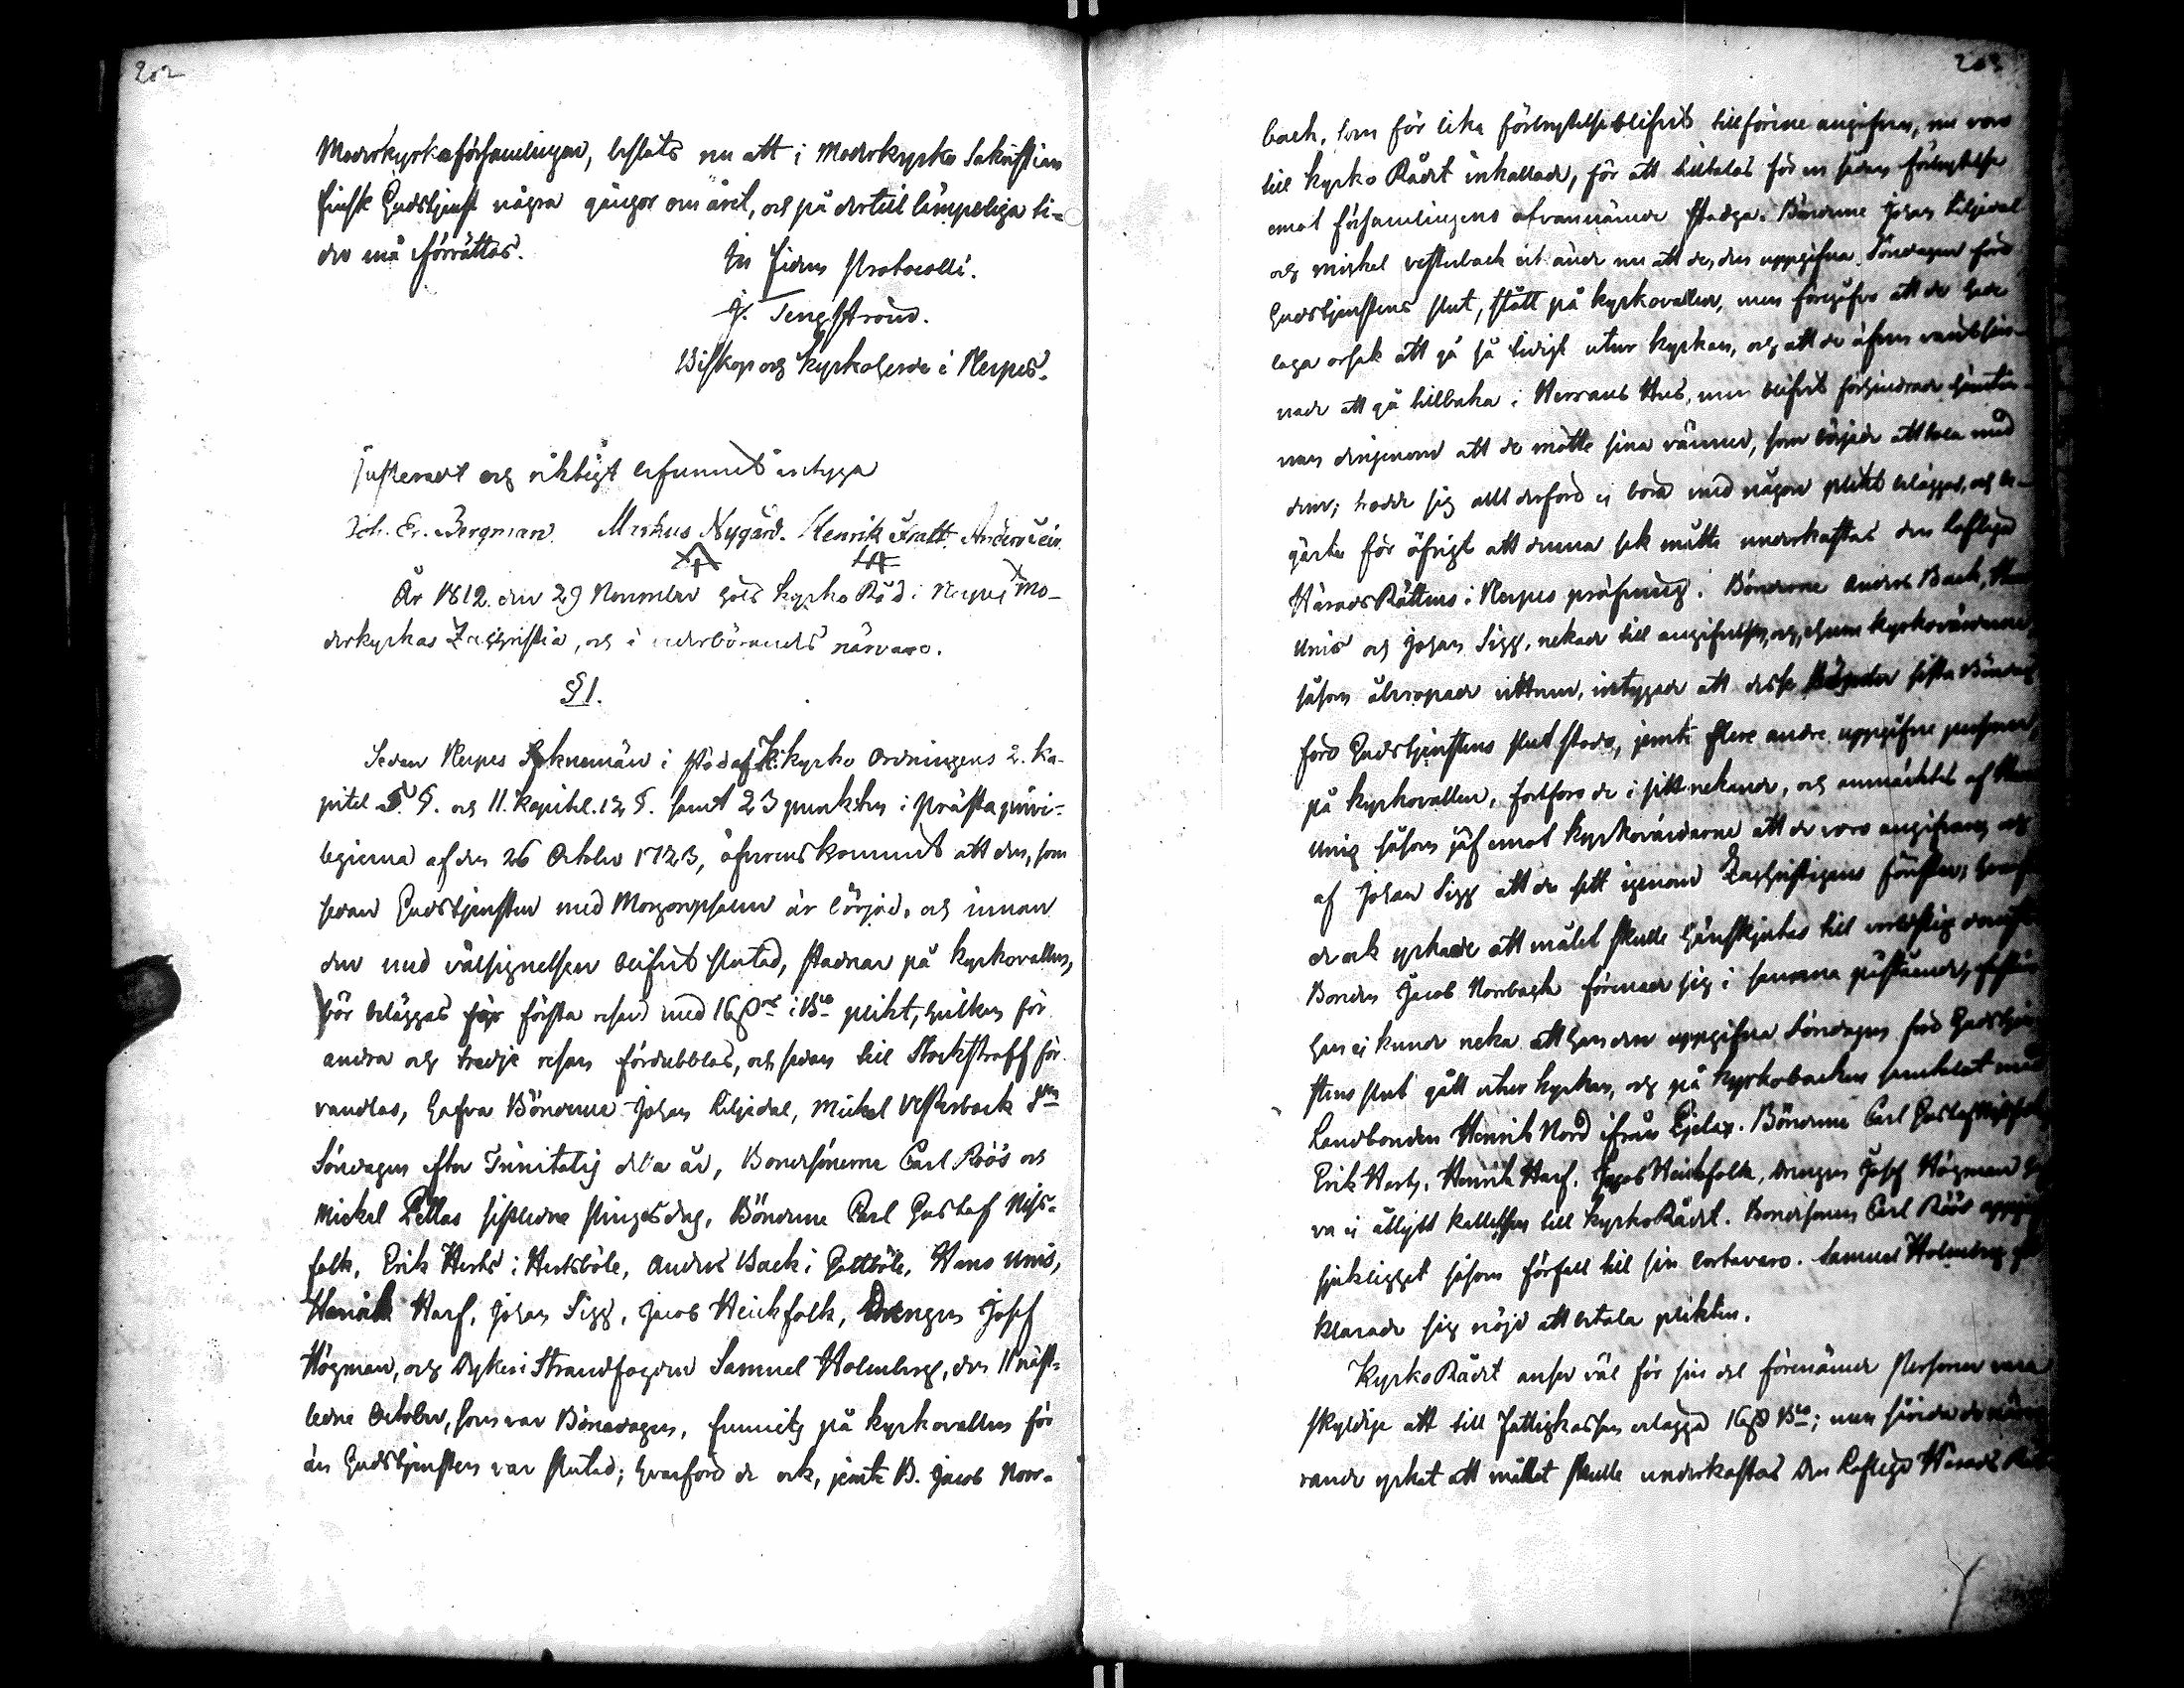 202
Moderkyrkoförsamlingen, besluts nu att i Moderkyrko Sakristian
finsk Gudstjenst några gångor om året, och på dertill lämpeliga ti-
der må förrättas.
In fidem Protocolli.
J. Tengström.
Biskop och Kyrkoherde i Nerpes.
Justeradt och riktigt befunnet intyga
Joh. Er. Bergman. Markus Nygård. Henrik Fratt. Anders
År 1812 den 29 November hölls Kyrko Råd i Nerpes Mo-
derkyrkas Zachristia, och i vederbörandes närvaro.
§ 1.
Sedan Nerpes Soknemän i stöd af Kyrko Ordningens 2. Ka-
pitel §. och 11. Kapitel. 12 §. samt 23 punkten i Prästaprivi-
legierna af den 26 October 1723, öfverenskommit att den, som
sedan Gudstjensten med Morgonpsalm är börjad, och innan
den med välsignelsen blifvit slutad, stadnar på kyrkovallen,
bör beläggas för första resan med 16 i Bco plikt, hvilken för
andra och tredje resan fördubblas, och sedan till Stockstraff för-
vandlas, hafva Bönderne Johan Liljedal, Mickel Westerback 8de
Söndagen efter Trinitatis detta år, Bondesönerne Carl Röös och
Mickel Pellas sistledne Pingesdag, Bönderne Carl Gustaf Nissfolk,
Erik Herts i Hertsböle, Anders Back i Gottböle, Hans Unis,
Henrik Harf, Johan Sigg, Jacob Heickfolk, Drengen Josef
Högman, och Dykeri Strandfogden Samuel Holmberg, den 11 näst-
ledne October, som var Bönedagen, funnits på kyrkovallen för
än Gudstjensten var slutad; hvarföre de ock, jemte B. Jacob Norr-
back, som för lika förbrytelse blifvit tillförene angifven, nu voro
till Kyrko Rådet inkallade, för att tilltalas för en sådan förbrytelse
emot församlingens ofvannämde stadga. Bönderne Johan Liljedal
och Mickel Westerback nu att de, den uppgifna Söndagen före
Gudstjenstens slut, stått på kyrkovallen, men föregåfvo att de hade
laga orsak att gå så tidigt utur kyrkan, och att de äfven varit sin-
nade att gå tillbaka i Herrans Hus, men blifvit förhindrade
derigenom att de mötte sina vänner, som började att tala med
dem; trodde sig allt derföre ej böra med någon plikt beläggas, och be-
gärte för öfrigt att denna sak måtte underkastas den Loflige
Härads Rättens i Nerpes pröfning. Bönderne Anders Back, Hans
Unis och Johan Sigg, nekade till angifvelsen, och ehuru kyrkovärdarne,
såsom åberopade vittnen, intygade att desse sista Bönedag
före Gudstjenstens slut stodo, jemte flere andre uppgifne personer,
på kyrkovallen, fortforo de i sitt nekande, och anmärktes af Hans
Unis såsom jäf emot Kyrkovärdarne att de voro angifvare, och
af Johan Sigg att de sett igenom Zachristigens fönster;
de ock yrkade att målet skulle hänskjutas till verldslig domstol
Bonden Jacob Norrback förenade sig i samma påstående,
han ej kunde neka att han den uppgifna Söndagen före Gudstjen-
stens slut gått utur kyrkan, och på Kyrkobacken samtalat med
Landbonden Henrik Nord ifrån Tjelax. Bönderne Carl Gustaf Nissfolk
Erik Herts, Henrik Harf, Jacob Heickfolk, Drengen Josef Högman
va ej åtlydt kallelsen till Kyrko Rådet. Bondesonen Carl Röös uppgifvit
sjuklighet såsom förfall till sin bortovaro. Samuel Holmberg
klarade sig nöjd att betala plikten.
Kyrko Rådet anser väl för sin del förenämnde Personer vara
skyldige att till Fattigkassan erlägga 16 Bco; men
rande yrkat att målet skulle underkastas Den Loflige Härads Rät-